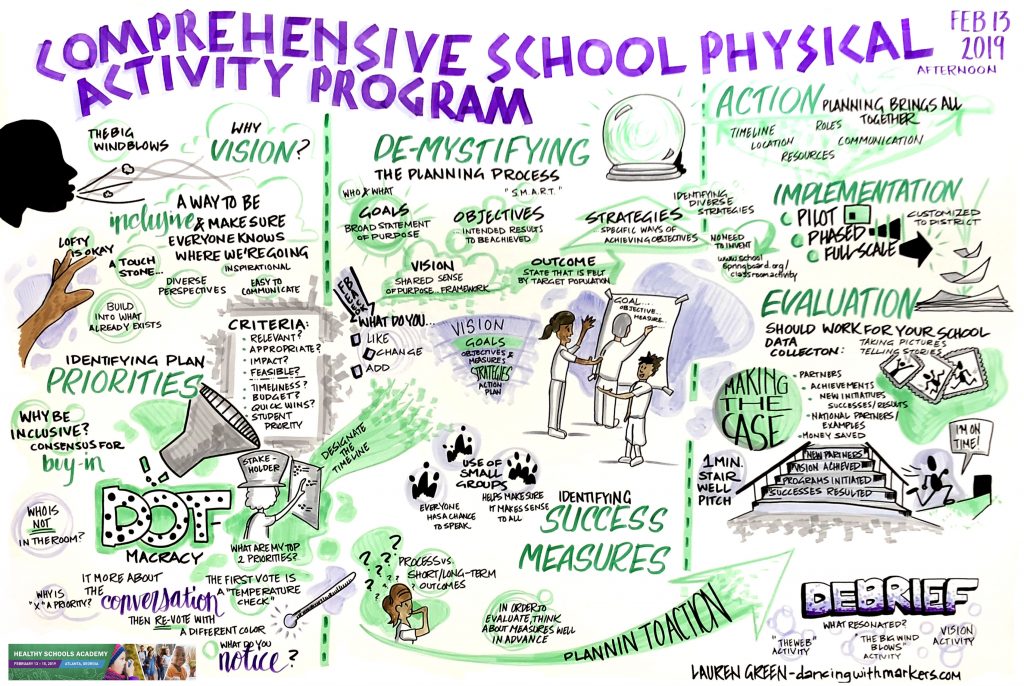 COMPREHENSIVE SCHOOL PHYSICAL
ACTIVITY PROGRAM
FEB 13
2019
AFTERNOON
THE BIG
WIND BLOWS
WHY
VISION?
A WAY TO BE
inclusive & MAKE SURE
EVERYONE KNOWS
WHERE WE'RE GOING
LOFTY
IS OKAY
A TOUCH
STONE...
DIVERSE
PERSPECTIVES
INSPIRATIONAL
EASY TO
COMMUNICATE
BUILD
INTO WHAT
ALREADY EXISTS
IDENTIFYING PLAN
PRIORITIES
CRITERIA:
• RELEVANT?
• APPROPRIATE?
• IMPACT?
• FEASIBLE?
• TIMELINESS?
• BUDGET?
• QUICK WINS?
• STUDENT
PRIORITY
WHY BE
INCLUSIVE?
CONSENSUS FOR
buy-in
STAKE-
HOLDER
DESIGNATE
THE
TIMELINE
WHO IS
NOT
IN THE ROOM?
DOT-
MACRACY
WHAT ARE MY TOP
2 PRIORITIES?
WHY IS
"X" A PRIORITY?
IT MORE ABOUT
THE
conversation
THEN RE-VOTE WITH
A DIFFERENT COLOR
THE FIRST VOTE IS
A "TEMPERATURE
CHECK"
WHAT DO YOU
notice?
HEALTHY SCHOOLS ACADEMY
FEBRUARY 13 - 15, 2019
ATLANTA, GEORGIA
DE-MYSTIFYING
THE PLANNING PROCESS
WHO & WHAT
GOALS
BROAD STATEMENT
OF PURPOSE
"S.M.A.R.T."
OBJECTIVES
...INTENDED RESULTS
TO BE ACHIEVED
STRATEGIES
SPECIFIC WAYS OF
ACHIEVING OBJECTIVES
IDENTIFYING
DIVERSE
STRATEGIES
NO NEED
TO INVENT
www.school
springboard.org/
classroomactivity
VISION
SHARED SENSE
OF PURPOSE... FRAMEWORK
OUTCOME
STATE THAT IS FELT
BY TARGET POPULATION
FEEDBACK
WHAT DO YOU...
LIKE
CHANGE
ADD
VISION
GOALS
OBJECTIVES &
MEASURES
STRATEGIES
ACTION
PLAN
GOAL...
OBJECTIVE...
MEASURE...
USE OF
SMALL
GROUPS
EVERYONE
HAS A CHANCE
TO SPEAK
HELPS MAKE SURE
IT MAKES SENSE
TO ALL
IDENTIFYING
SUCCESS
MEASURES
? ? ? ? ? ?
PROCESS VS.
SHORT/LONG-TERM
OUTCOMES
IN ORDER TO
EVALUATE, THINK
ABOUT MEASURES WELL
IN ADVANCE
PLANNIN TO ACTION
ACTION PLANNING BRINGS ALL
TOGETHER
TIMELINE
ROLES
LOCATION
COMMUNICATION
RESOURCES
IMPLEMENTATION
PILOT
PHASED
FULL SCALE
CUSTOMIZED
TO DISTRICT
EVALUATION
SHOULD WORK FOR YOUR SCHOOL
DATA
COLLECTON:
TAKING PICTURES
TELLING STORIES
MAKING
THE
CASE
• PARTNERS
• ACHIEVEMENTS
• NEW INITIATIVES
SUCCESSES/RESULTS
• NATIONAL PARTNERS/
EXAMPLES
• MONEY SAVED
1 MIN.
STAIR
WELL
PITCH
NEW PARTNERS
VISION ACHIEVED
PROGRAMS INITIATED
SUCCESSES RESULTED
I'M ON
TIME!
DEBRIEF
WHAT RESONATED?
"THE WEB"
ACTIVITY
"THE BIG WIND
BLOWS"
ACTIVITY
VISION
ACTIVITY
LAUREN GREEN - dancingwithmarkers.com